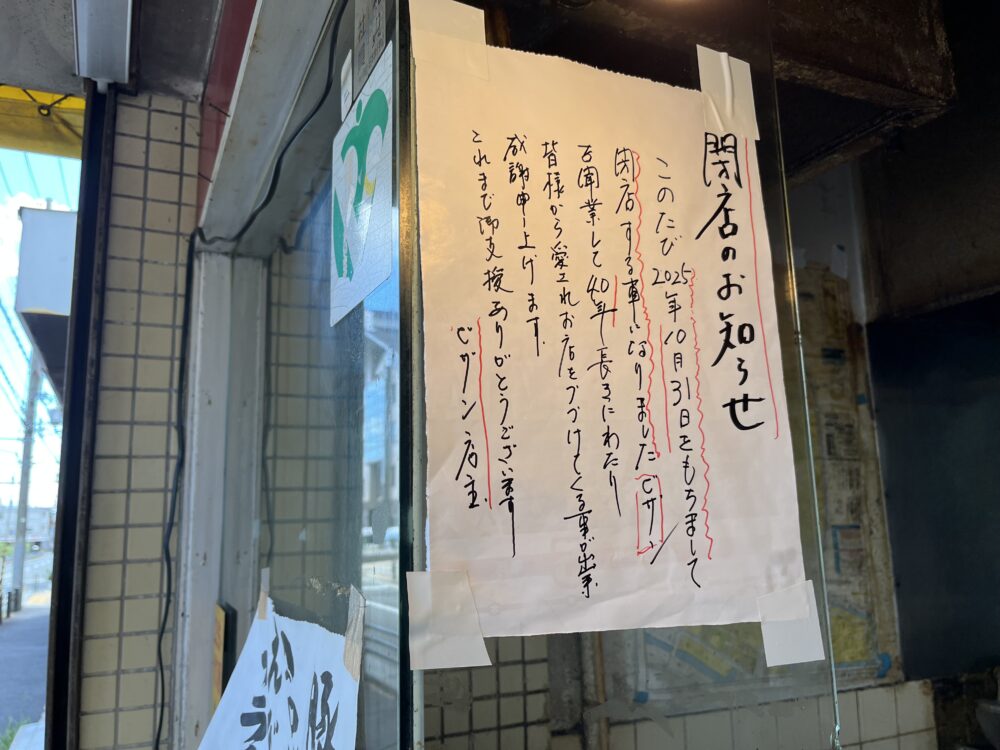 閉店のお知らせ
このたび2025年10月31日をもちまして
閉店する事になりましたビザン
を開業して40年長きにわたり
皆様から愛されお店をつづけてくる事が出来
感謝申し上げます.
これまで御支援ありがとうございます
ビザン店主.
豚